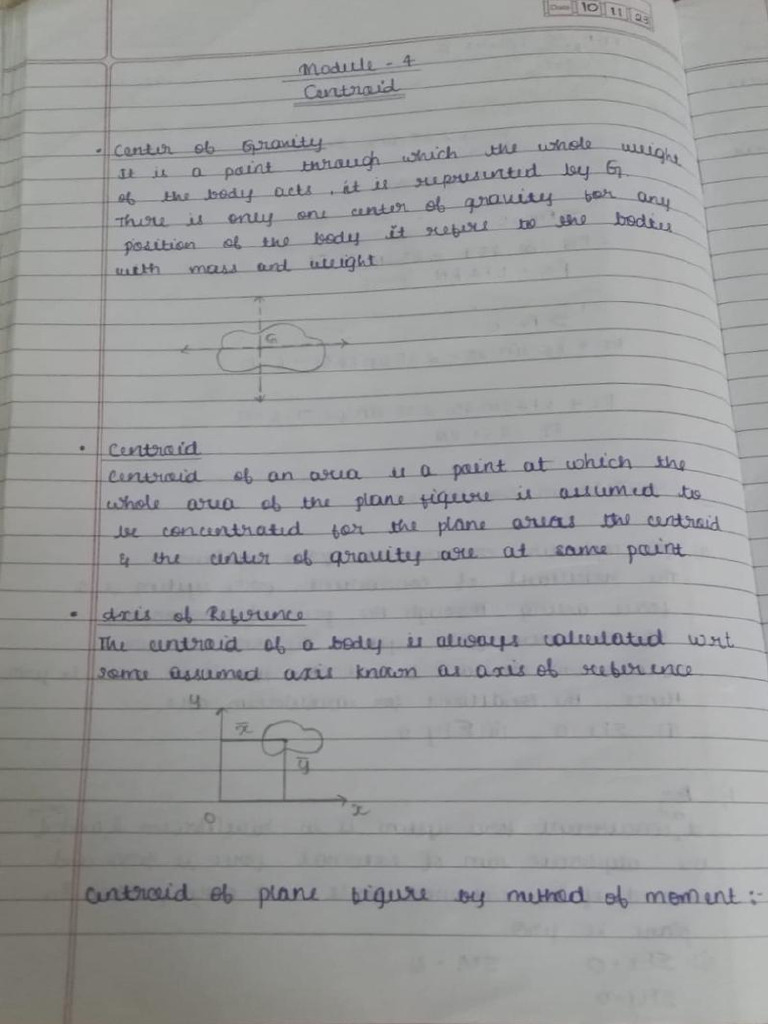 Date 10 11 23
Module - 4
Centroid
• Center of Gravity
It is a point through which the whole weight
of the body acts. it is represented by G.
There is only one center of gravity for any
position of the body it refers to the bodies
with mass and weight
G
• Centroid
Centroid of an area is a point at which the
whole area of the plane figure is assumed to
be concentrated for the plane areas the centroid
& the center of gravity are at same point
• Axis of Reference
The centroid of a body is always calculated wrt
some assumed axis known as axis of reference
y
x̄
ȳ
O x
Centroid of plane figure by method of moment :-